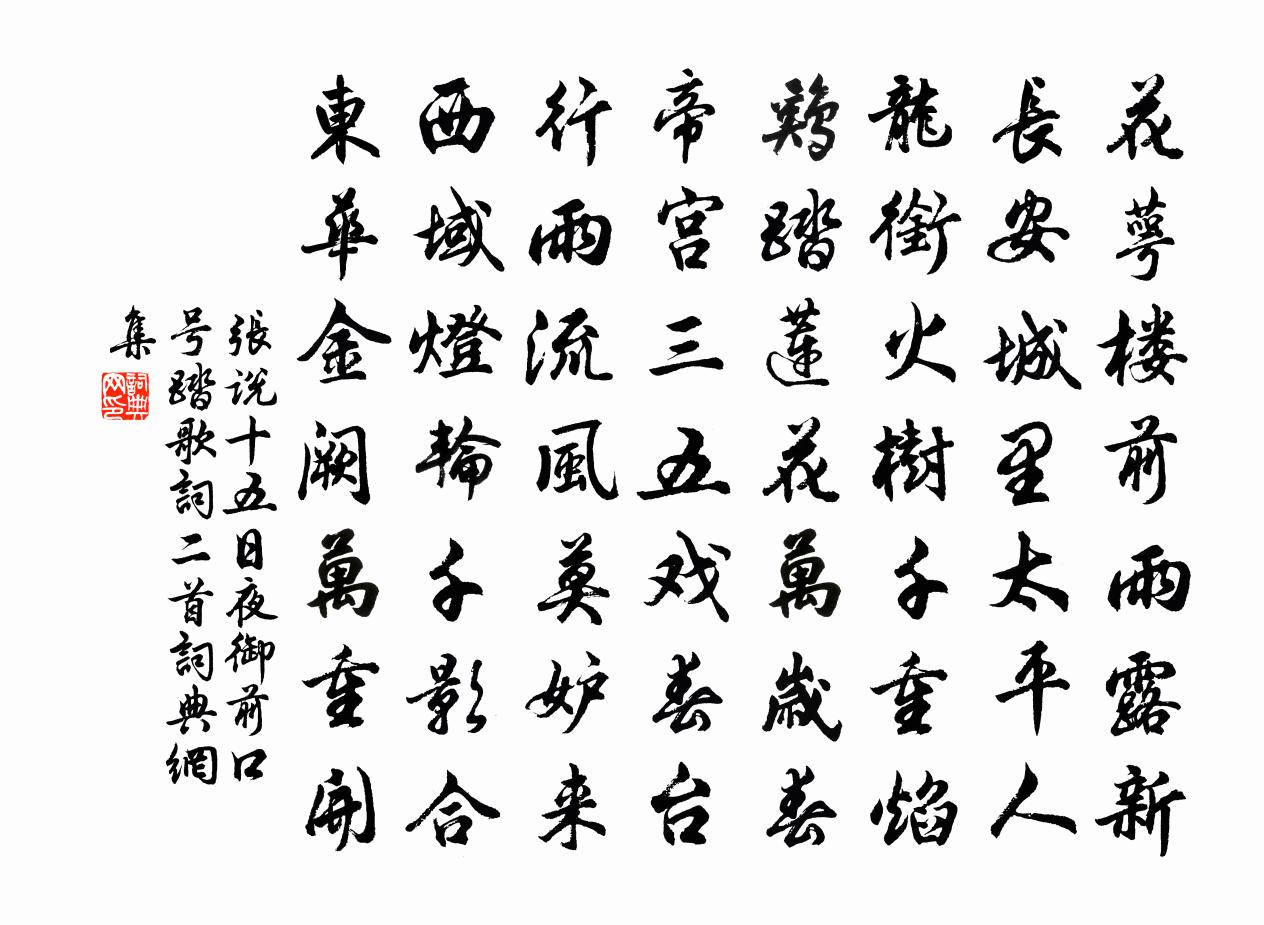 花萼楼前雨露新
長安城里太平人
龍銜火樹千重焰
鷄踏蓮花萬歲春
帝宮三五戏春台
行雨流風莫妒来
西域燈輪千影合
東華金闕萬重開
張说十五日夜御前口
号踏歌詞二首詞典網
集
詞典网印